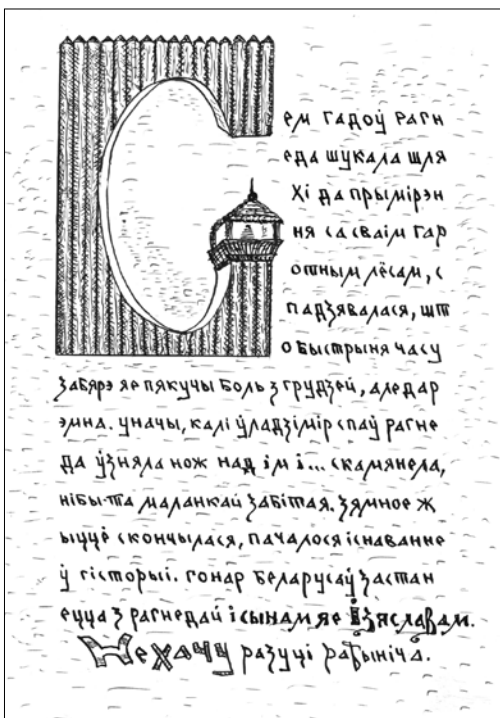 Сем гадоў рагн
еда шукала шля
хі да прымірэн
ня са сваім гар
отным лёсам, с
падзявалася, шт
о быстрыня часу
забярэ яе пякучы боль з грудзей, але дар
эмна. уначы, калі ўладзімір спаў рагне
да ўзняла нож над ім і... скамянела,
нібы-та маланкай забітая. зямное ж
ыццё скончылася, пачалося існаванне
ў гісторыі. гонар беларусаў застан
ецца з рагнедай і сынам яе Ізяславам.
Не хачу разуці рабыніча.